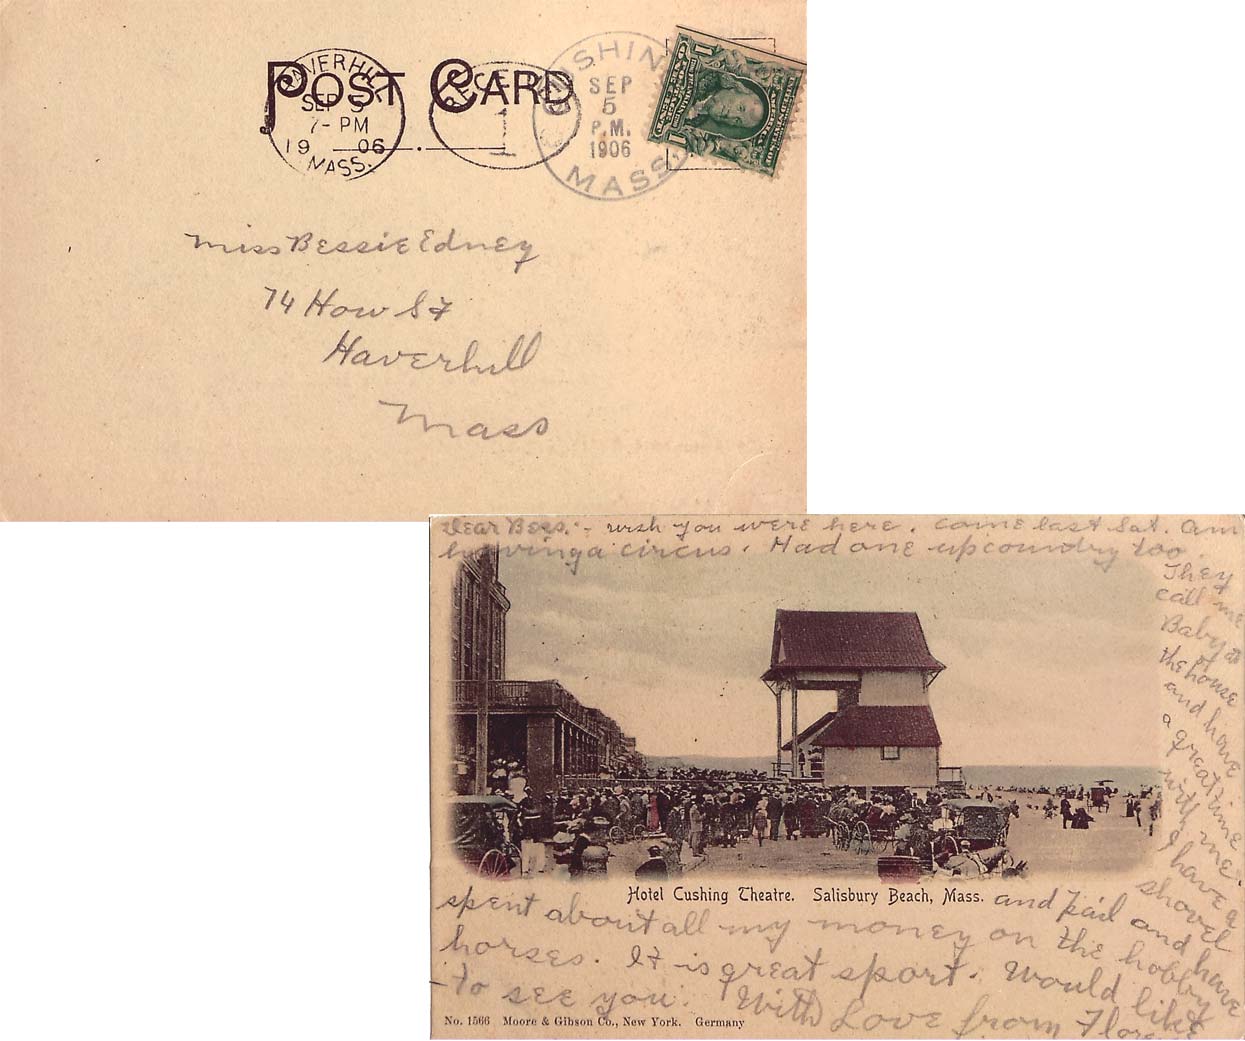 POST CARD
HAVERHILL
SEP 5
7- PM
19 06
MASS.
1
SEP
5
P.M.
1906
MASS.
1 1
Miss Bessie Edney
74 How St
Haverhill
Mass
Dear Bess:- wish you were here. Come last Sat. am
having a circus. Had one up country too.
They
call me
Baby
at
the house
and have
a great time
with me.
I have a
shovel
and pail and have
spent about all my money on the hobby
horses. It is great sport. Would like
to see you. With Love from
Hotel Cushing Theatre. Salisbury Beach, Mass.
No. 1566 Moore & Gibson Co., New York. Germany